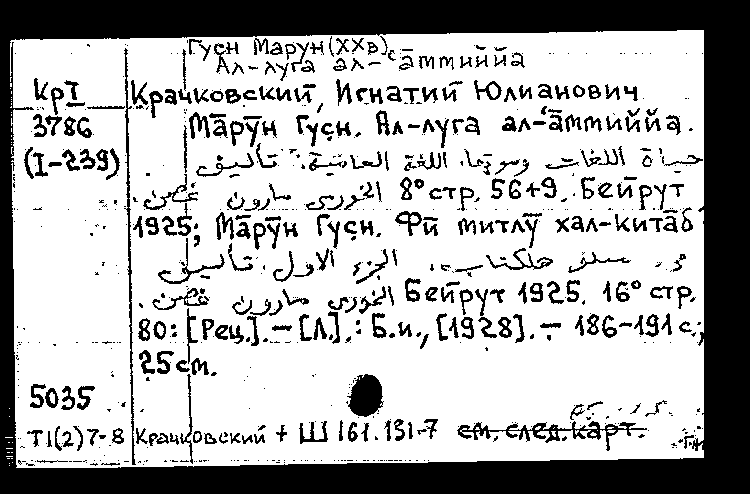 Гусн Марун (XXв)
Ал-луга ал-‘āммиййа
КрI
Крачковский, Игнатий Юлианович
3786
Мāрӯн Гусн. Ал-луга ал-‘āммиййа.
(I-239)
حياة اللغات وموتها، اللغة العامية. تأليف
الخوري مارون غصن. 8° стр. 56+9. Бейрут
1925; Мāрӯн Гусн. Фӣ митлӯ хал-китāб
في متلو هلكتاب. الجزء الاول. تأليف
الخوري مارون غصن. Бейрут 1925. 16° стр.
80: [Рец.]. — [Л.].: Б.и., [1928]. — 186-191 с.;
25 см.
5035
Т1(2)7-8 Крачковский + Ш 161.151-7 см. след. карт.